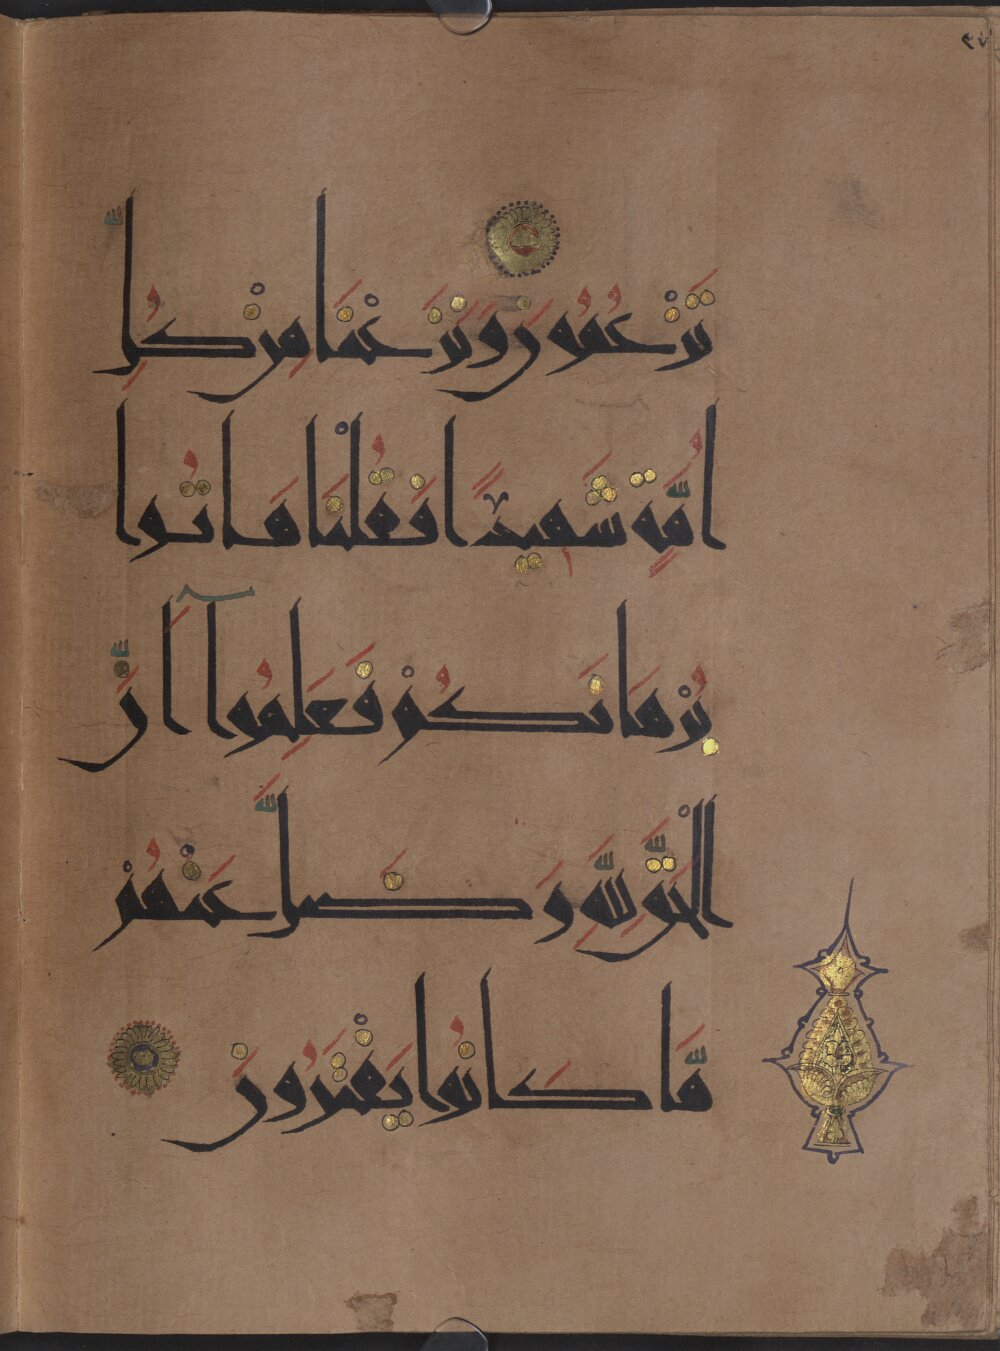 ٩٧
تَزْعُمُونَ وَنَزَعْنَا مِنْ كُلِّ
اُمَّةٍ شَهِيدًا فَقُلْنَا هَاتُوا
بُرْهَانَكُمْ فَعَلِمُوٓا اَنَّ
الْحَقَّ لِلّٰهِ وَضَلَّ عَنْهُمْ
مَّا كَانُوا يَفْتَرُونَ